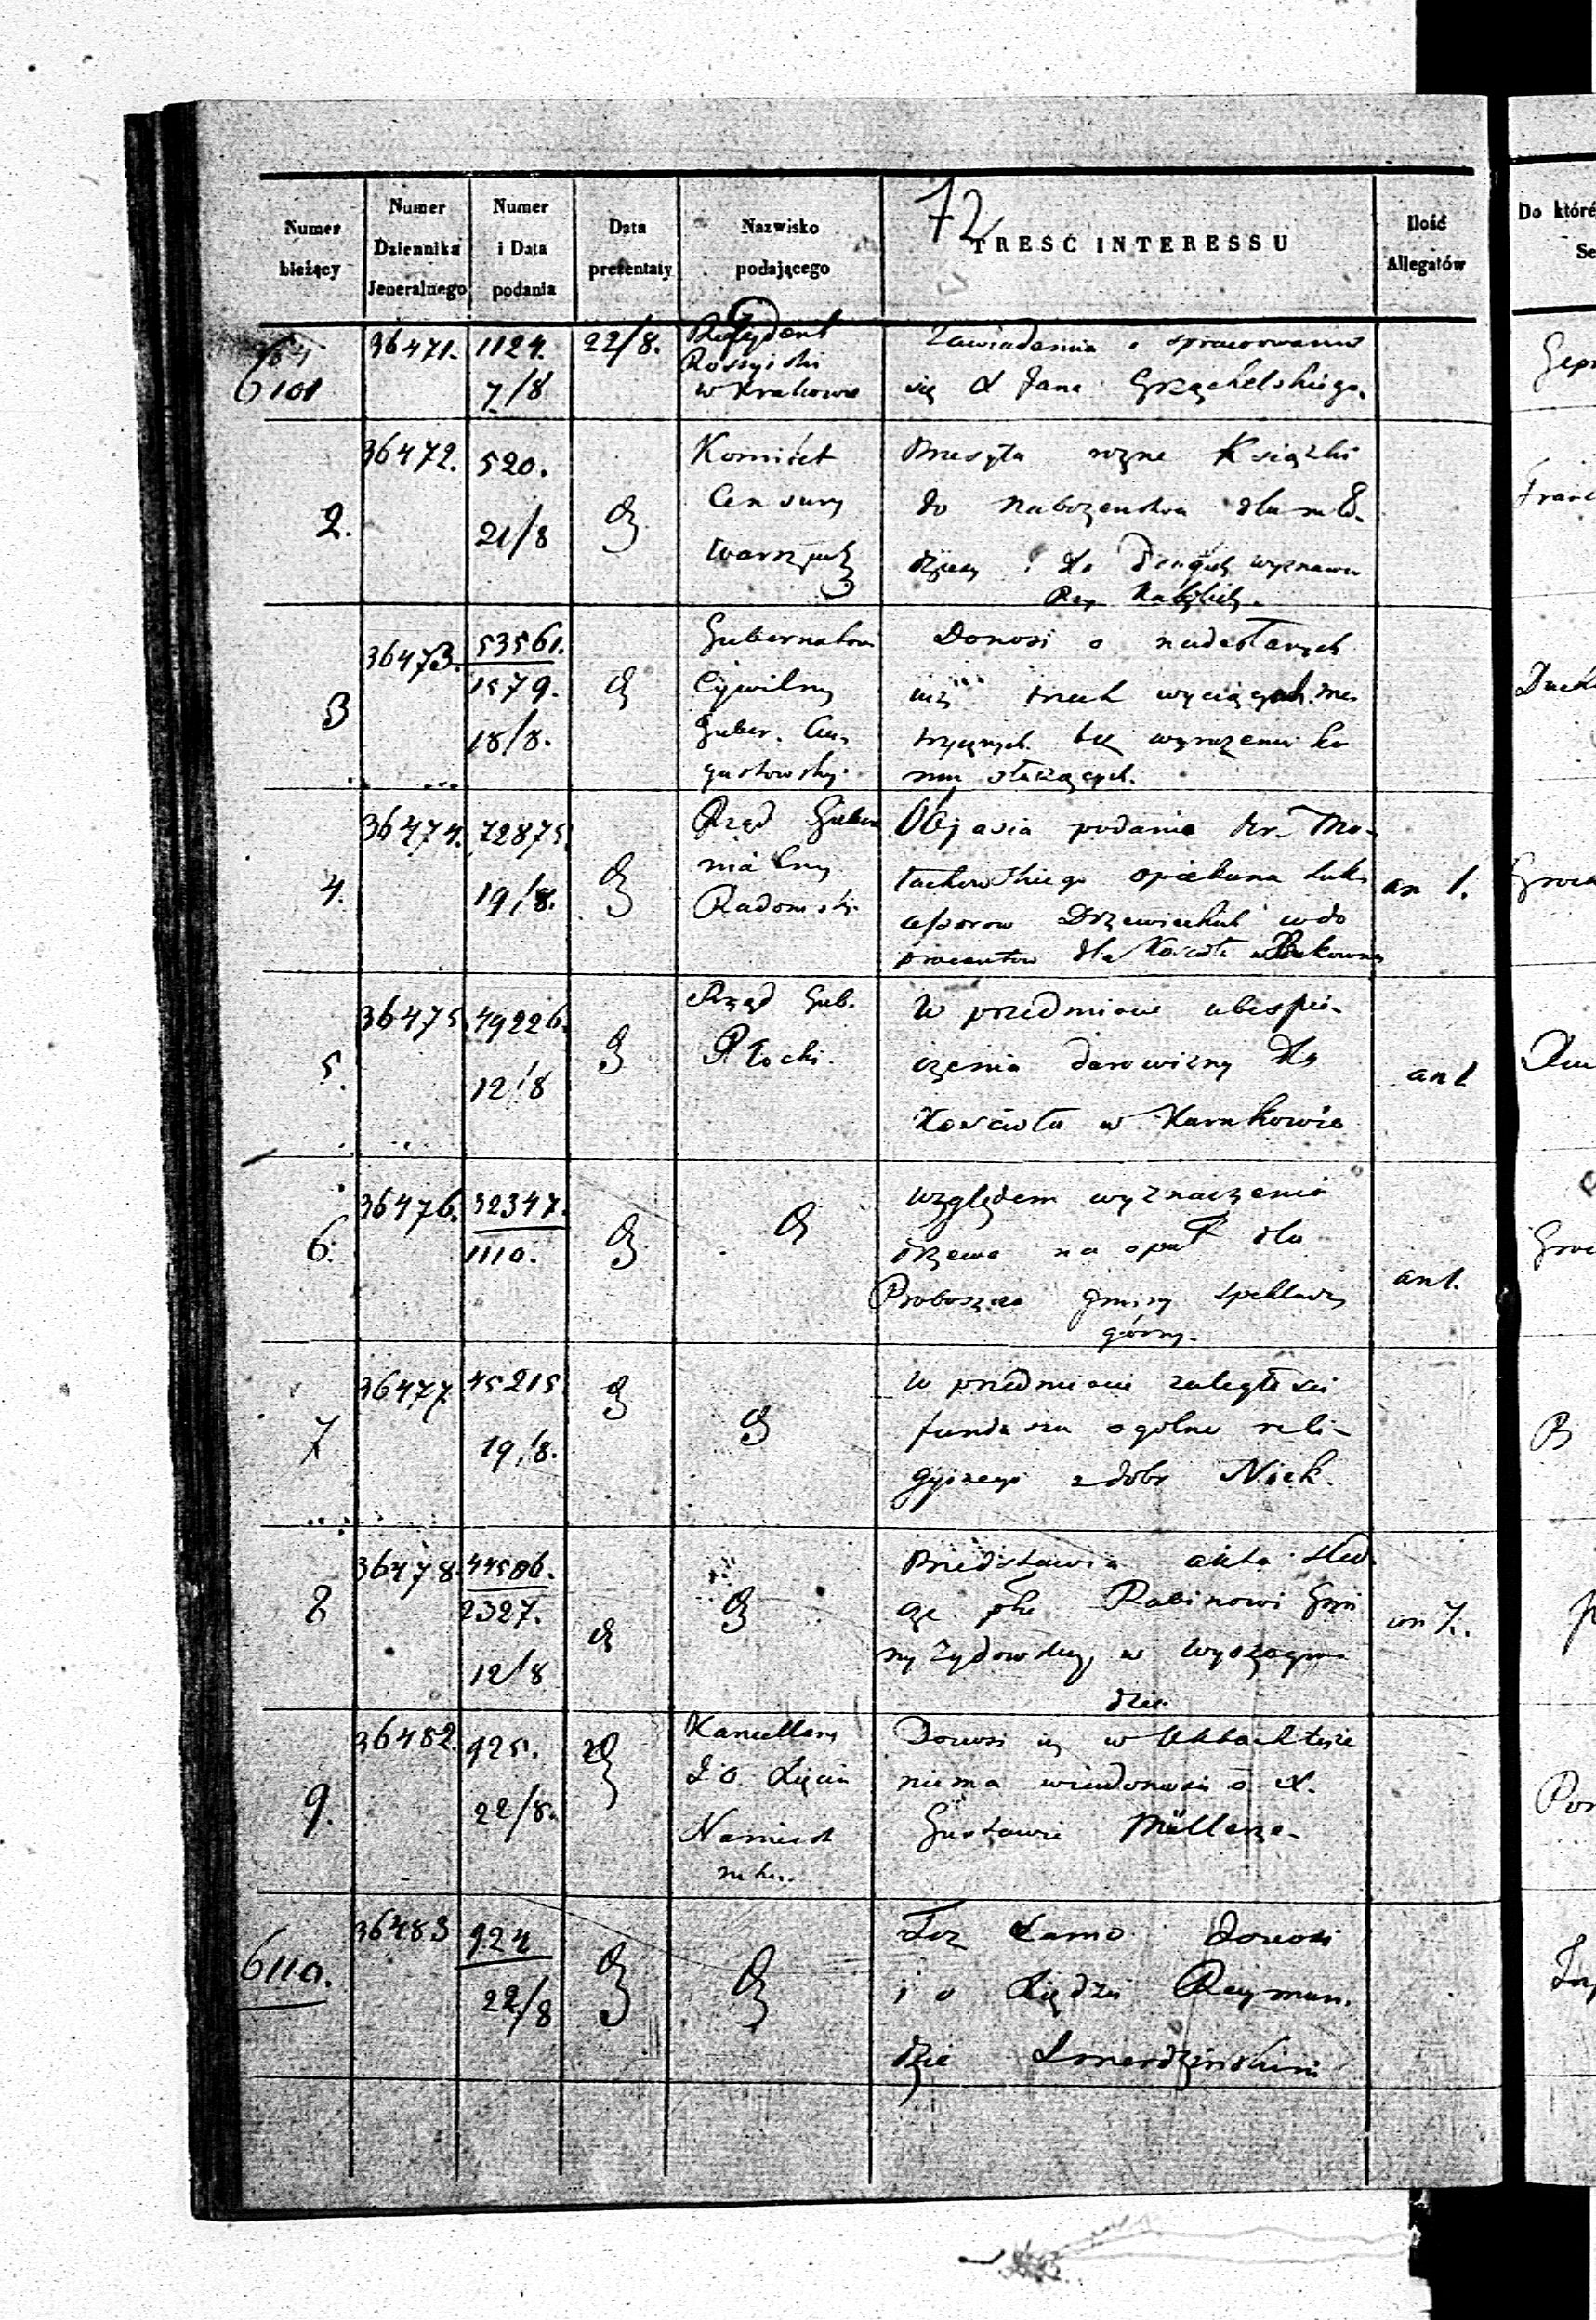 72
Numer bieżący
Numer Dziennika Jeneralnego
Numer i Data podania
Data prezentaty
Nazwisko podającego
TRESC INTERESSU
Ilość Allegatów
Do które
Se
6101
36471.
1124.
7/8
22/8.
Rezydent
Rossyiski
w Krakowie
Zawiadamia o
się X Jana
2.
36472.
520.
21/8
Komitet
Censury
Przesyła rożne Książki
do nabożenstwa dla mło-
dzieży i dla
3
36473.
53561.
1579.
18/8.
Gubernator
Cywilny
Guber. Au-
gustowsky.
Donosi o nadesłanych
trzech wyciągach me-
trycznych. bez wyrażenia ko
mu służących.
4.
36474.
72875.
19/8.
Rząd Guber
nialny
Radomski.
Objasia podanie
opiekuna Suk-
cessorow Drzewieckich wdo
procentow dla Kościoła
an 1.
5.
36475.
49226.
12/8
Rząd Gub.
Płocki.
W przedmiocie ubespie-
czenia darowizny dla
Kościoła w Karnkowie
an 1
6.
36476.
32347.
1110.
Względem wyznaczenia
drzewa na opał dla
Proboszcza gminy
górny.
an 1.
7
36477.
45215
19/8.
W przedmiocie zaległości
funduszu ogolno reli-
gyinego z dobr Niek.
8
36478.
44506.
2327.
12/8
Przedstawia akta sled-
cze pko Rabinowi Gmi
ny Żydowskiey w Wyszogro
dzie.
an 7.
9.
36482.
925.
22/8.
Kancellarya
J.O. Xięcia
Namiest
nika.
Donosi iż w
niema wiadomości o X.
Gustawie Müllerze.
6110.
36483
924
22/8
Toż samo donosi
i o Xiędzu Reymun-
dzie